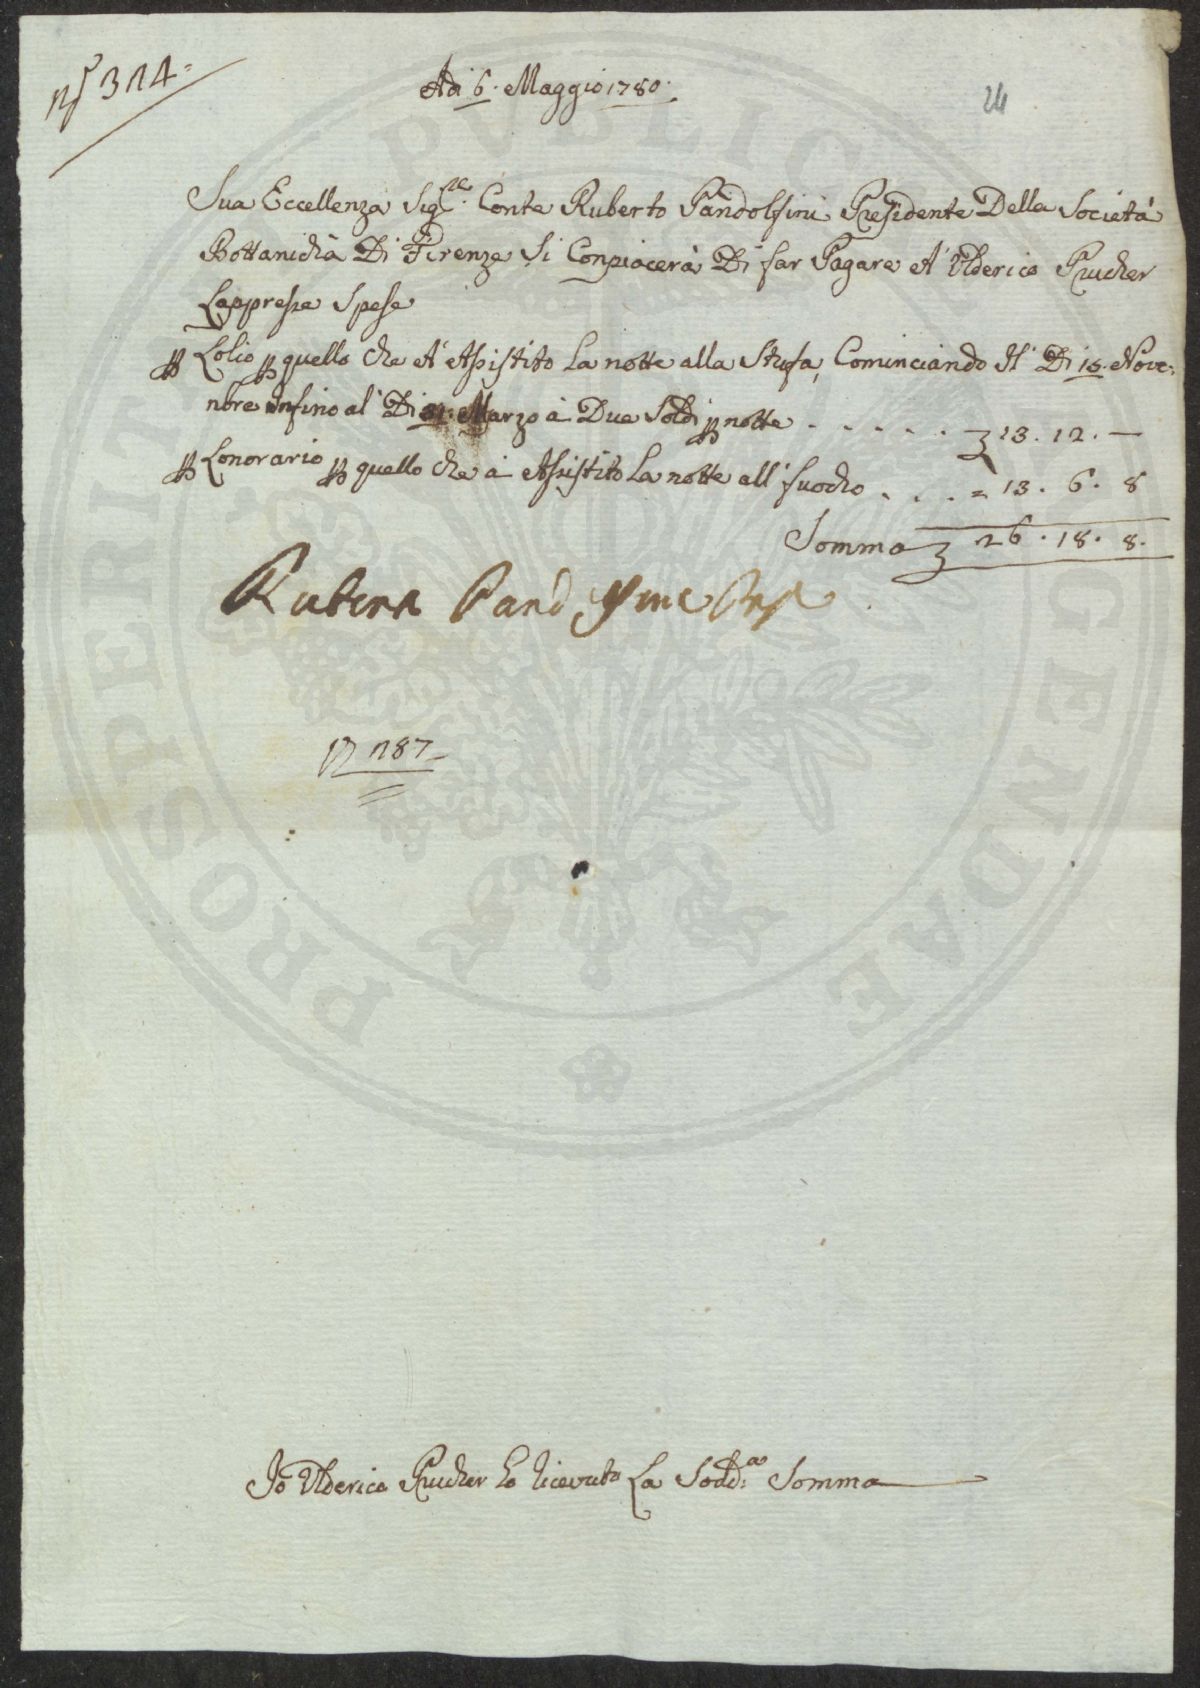 N° 314.
Adi 6. Maggio 1780.
24
Sua Eccellenza Sigre. Conte Ruberto Pandolfini Presidente Della Società
Bottanicha Di Firenze Si Conpiacerà Di far Pagare A' Ulderico Prucher
Lappresse Spese
PP Lolio PP quello che A' Assistito La notte alla Stufa, Cominciando Il Di 15. Nove=
nbre infino al' Di 31. Marzo a Due Soldi PP notte . . . . . . 13. 12. —
PP Lonorario PP quello che à Assistito La notte all' fuocho . . . = 13. 6. 8
Somma 26. 18. 8.
Ruberto Pandolfini Pres
N 187
Io Ulderico Prucher ho ricevuto La Sodd:a Somma
PROSPERITATI PUBLICAE AUGENDAE